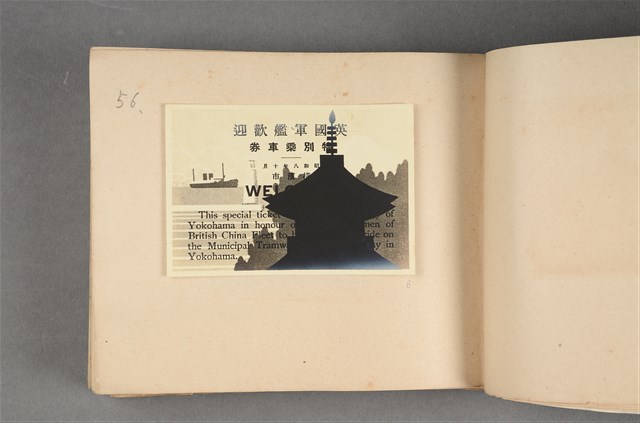 56.
英國軍艦歡迎
特別乘車券
昭和八年十月
市
WEL
This special ticket of
Yokohama in honour men of
British China Fleet to ride on
the Municipal Tramw ay in
Yokohama.
6